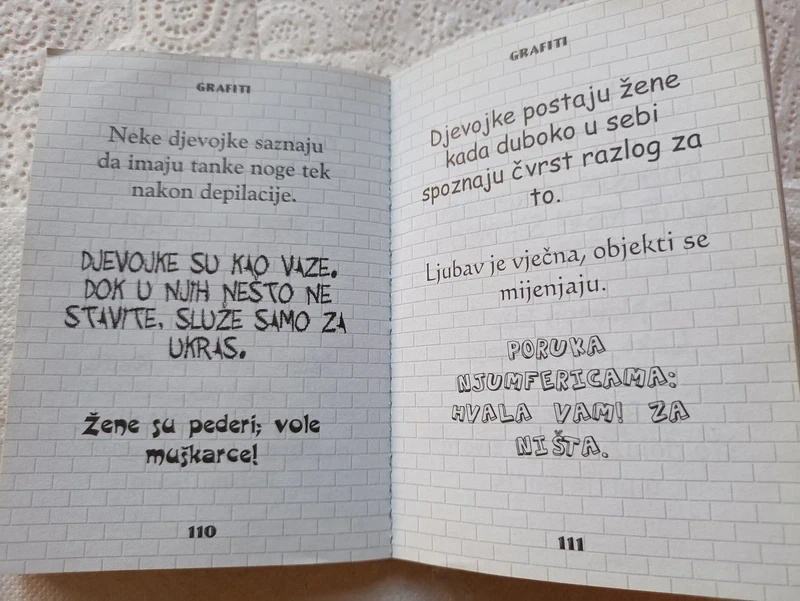 GRAFITI
Neke djevojke saznaju
da imaju tanke noge tek
nakon depilacije.
DJEVOJKE SU KAO VAZE.
DOK U NJIH NEŠTO NE
STAVITE, SLUŽE SAMO ZA
UKRAS.
Žene su pederi; vole
muškarce!
110
GRAFITI
Djevojke postaju žene
kada duboko u sebi
spoznaju čvrst razlog za
to.
Ljubav je vječna, objekti se
mijenjaju.
PORUKA
NJUMFERICAMA:
HVALA VAM! ZA
NIŠTA.
111